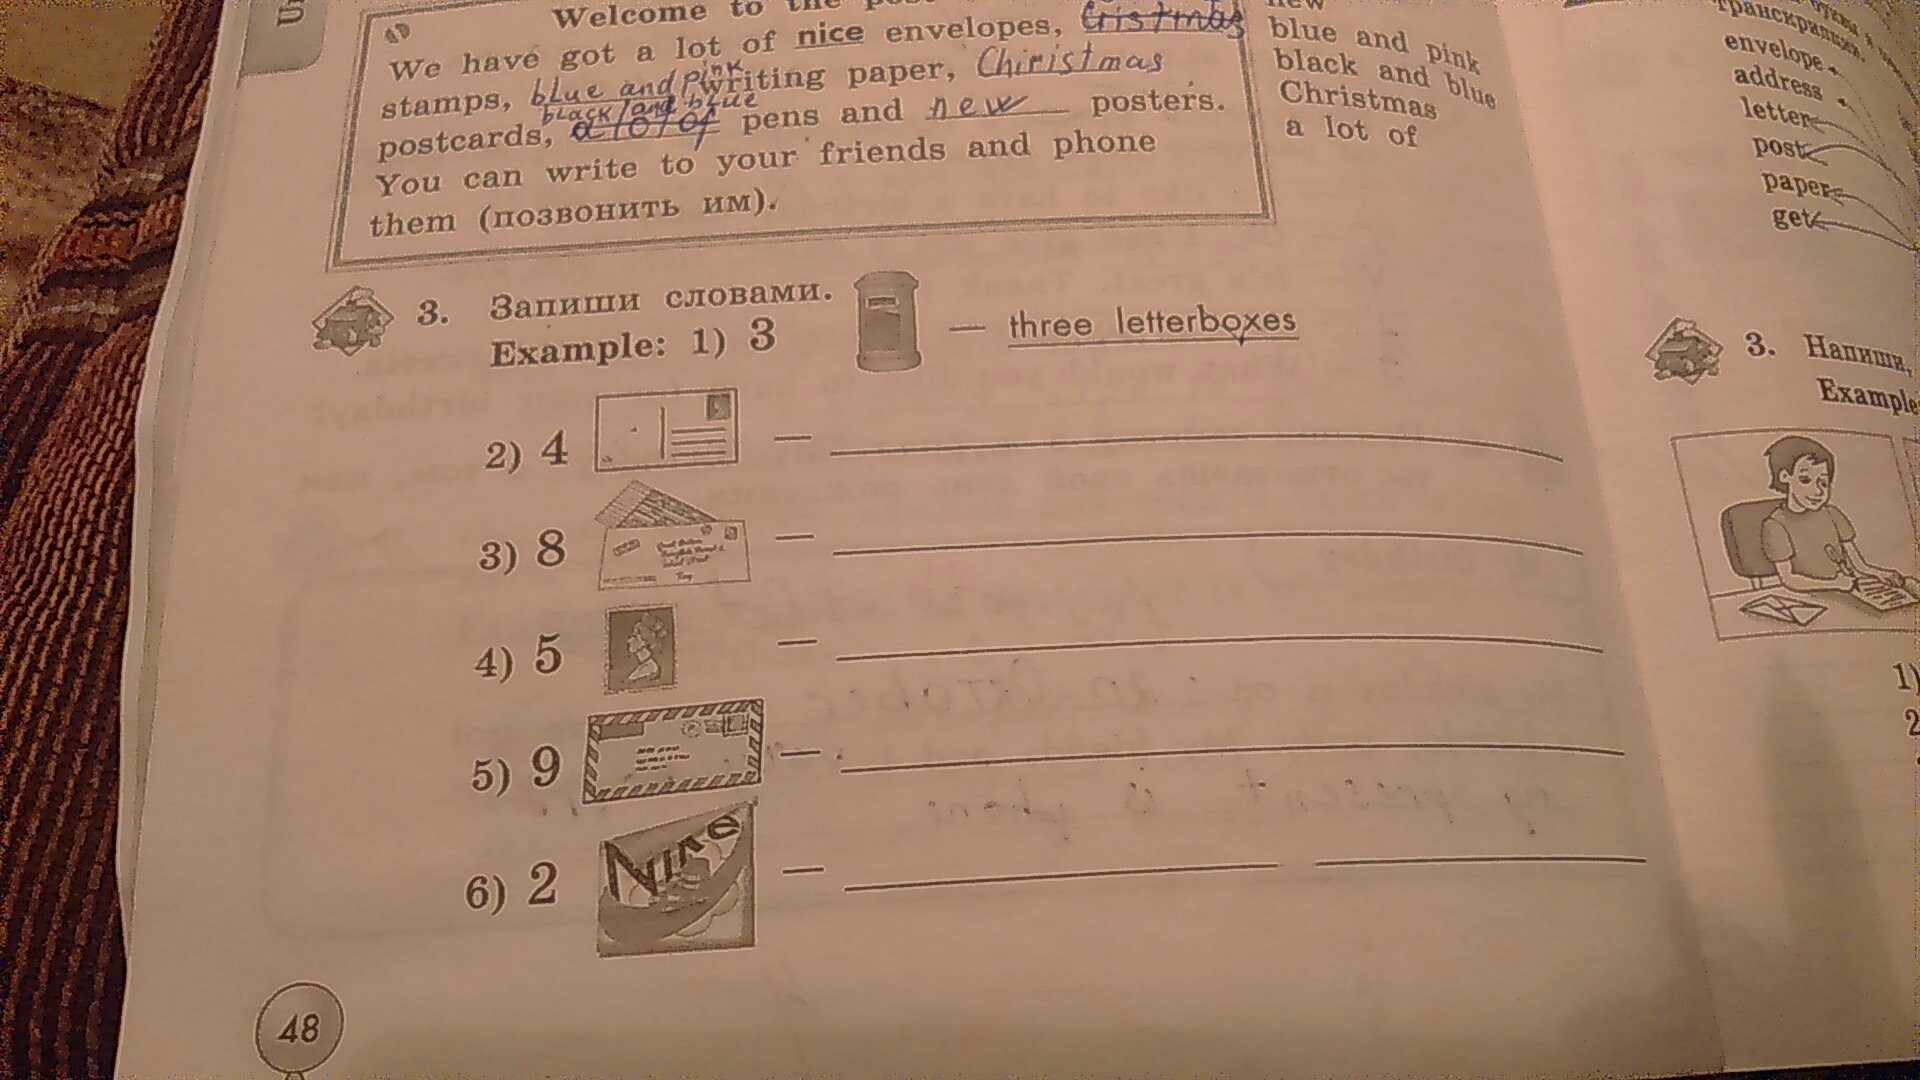 5
Welcome to the
We have got a lot of nice envelopes, Cristmas
stamps, blue and pink writing paper, Chiristmas
black and blue
postcards, a lot of pens and new posters.
You can write to your friends and phone
them (позвонить им).
new
blue and pink
black and blue
Christmas
a lot of
3. Запиши словами.
Example: 1) 3 — three letterboxes
2) 4 —
3) 8 —
4) 5 —
5) 9 —
6) 2 Nice —
48
транскрипции.
envelope
address
letter
post
paper
get
3. Напиши,
Example
1)
2